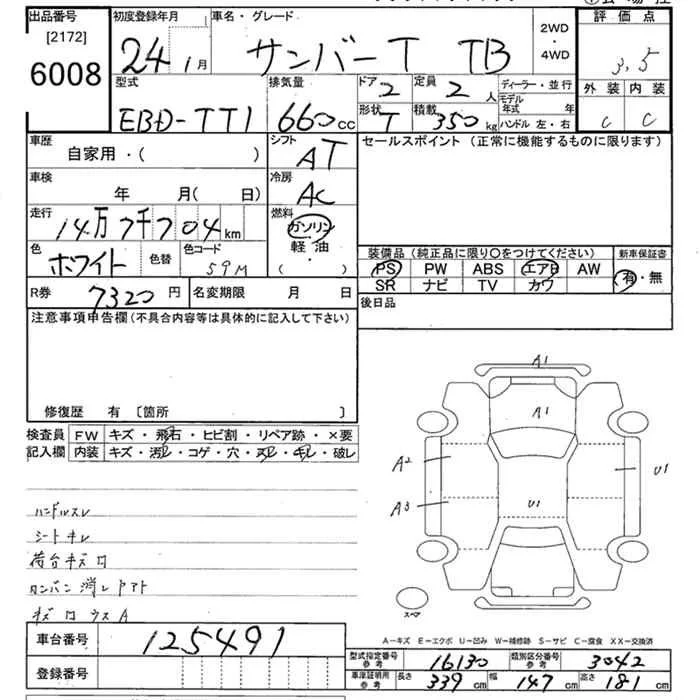 出品番号 初度登録年月 車名・グレード 2WD・4WD 評価点
[2172]
6008
24年1月 サンバーT TB 3.5
型式 排気量 ドア 2 定員 2人 ディーラー・並行 外装 内装
EBD-TT1 660cc 形状 T 積載 350kg モデル年式 年 ハンドル 左・右 C C
車歴 シフト セールスポイント (正常に機能するものに限ります)
自家用・( ) AT
車検 冷房
年 月(日) AC
走行 燃料
14万7千704km ガソリン
軽・油
( )
色 色替 色コード
ホワイト 59M
装備品 (純正品に限り○をつけてください) 新車保証書
PS PW ABS エアB AW 有・無
SR ナビ TV カワ
R券 7320円 名変期限 月 日
後日品
注意事項申告欄(不具合内容等は具体的に記入して下さい)
修復歴 有 [箇所 ]
検査員 FW キズ・飛石・ヒビ割・リペア跡・×要
記入欄 内装 キズ・汚レ・コゲ・穴・スレ・キレ・破レ
ハンドルスレ
シートキレ
荷台キズ口
ロンバン消しアト
キズ口ウスA
A1
A1
A2
A3
U1
U1
スペア
A-キズ E-エクボ U-凹み W-補修跡 S-サビ C-腐食 XX-交換済
車台番号 125491
登録番号
型式指定番号 参考 16130 類別区分番号 参考 3042
車庫証明用 参考 長さ 339cm 幅 147cm 高さ 181cm